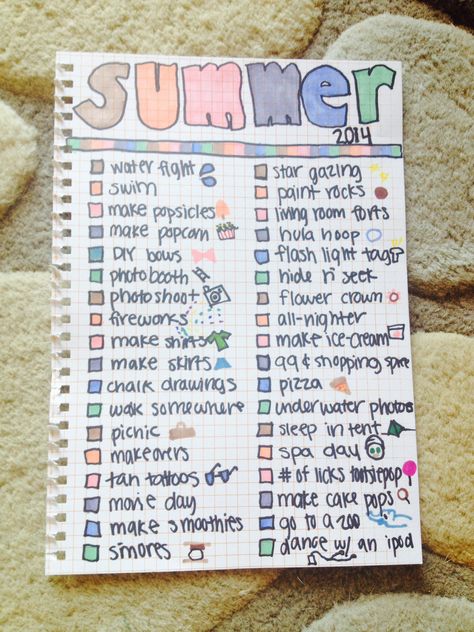 summer
2014
water fight
swim
make popsicles
make popcorn
DIY bows
photobooth
photoshoot
fireworks
make shirts
make skirts
chalk drawings
walk somewhere
picnic
makeovers
tan tattoos
movie day
make smoothies
s'mores
star gazing
paint rocks
living room forts
hula hoop
flash light tag
hide n' seek
flower crown
all-nighter
make ice-cream
99¢ shopping spree
pizza
underwater photos
sleep in tent
spa day
# of licks tootsiepop
make cake pops
go to a zoo
dance w/ an ipod